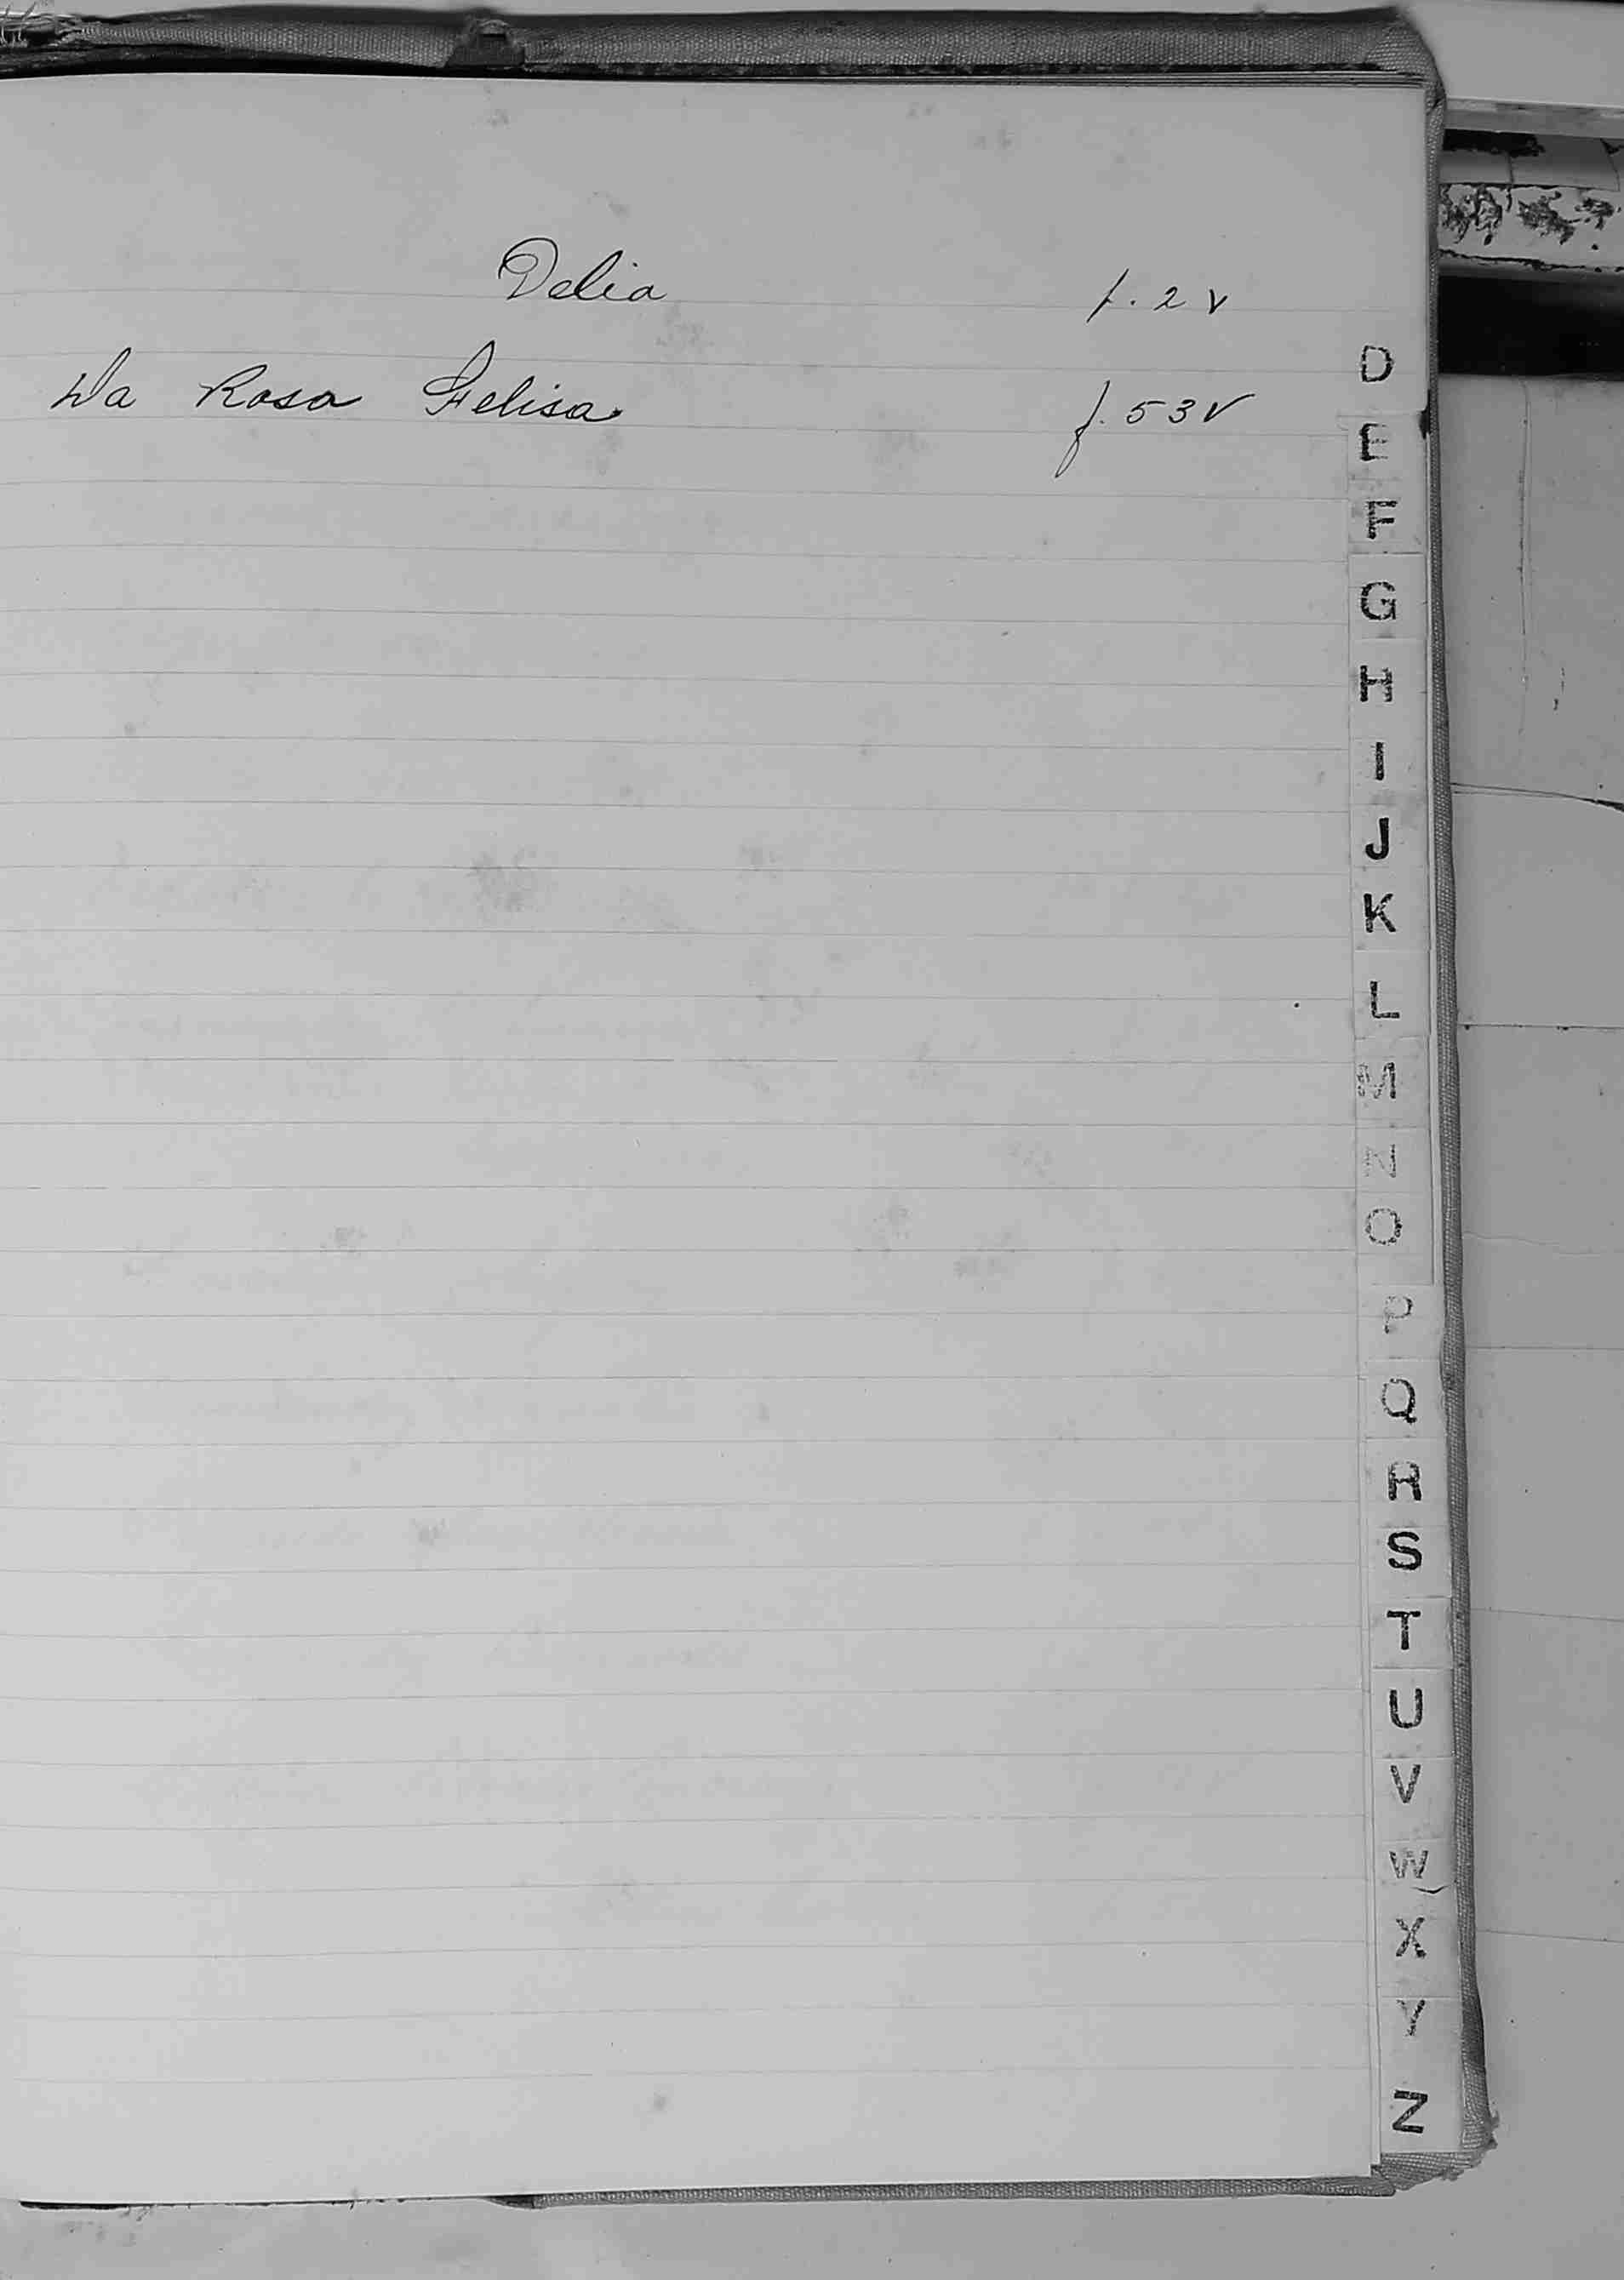 Delia f. 2 v
Da Rosa Felisa f. 53 v
D
E
F
G
H
I
J
K
L
M
N
O
P
Q
R
S
T
U
V
W
X
Y
Z